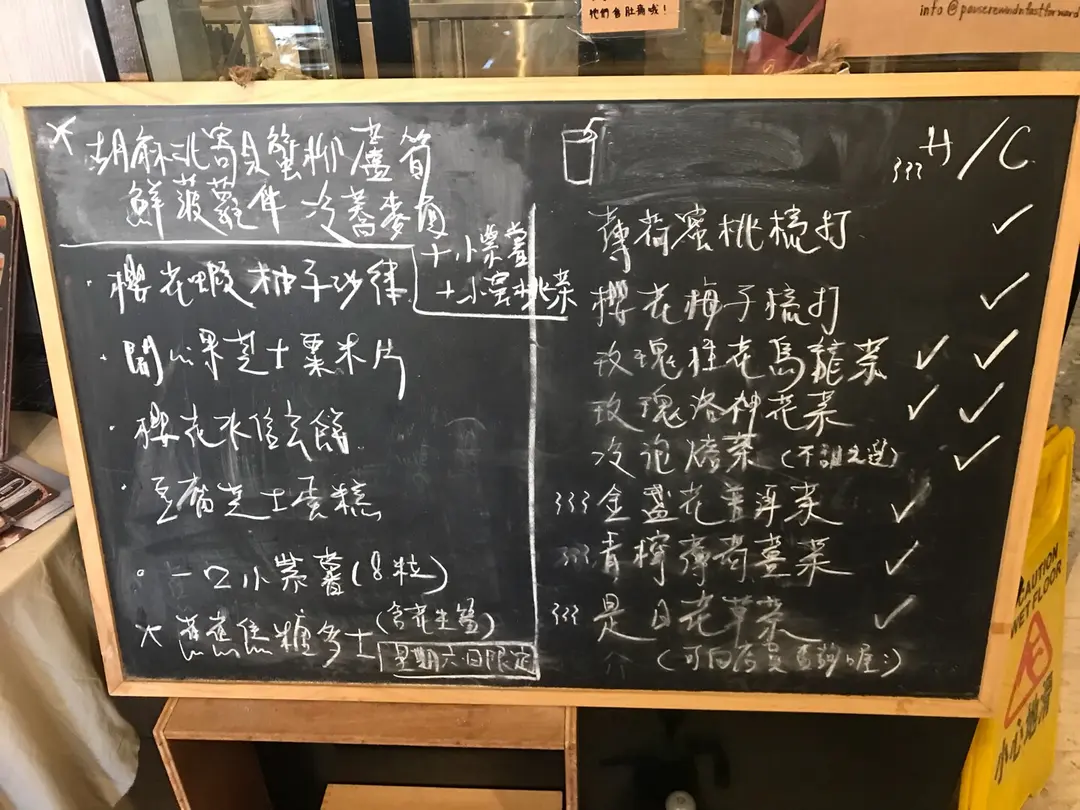 們會肚痛哦！
info @ pauserewindnfastforward
* 胡麻北寄貝蟹柳蘆筍
鮮菠蘿伴 冷蕎麥麵
+小紫薯
+小蜜桃茶
· 櫻花蝦柚子沙律
· 開心果芝士粟米片
· 櫻花水信玄餅
· 豆腐芝士蛋糕
· 一口小紫薯(8粒)
* 蕉蕉焦糖多士
(含花生醬)
星期六日限定
H/C
薄荷蜜桃梳打 ✓
櫻花梅子梳打 ✓
玫瑰桂花烏龍茶 ✓ ✓
玫瑰洛神花茶 ✓ ✓
冷泡焙茶 (不甜之選) ✓
金盞花普洱茶 ✓
青檸薄荷薑茶 ✓
是日花草茶 ✓
(可向店員查詢喔:)
CAUTION
WET FLOOR
小心地滑